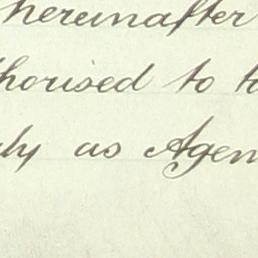 hereinafter
horised to t
ly as Agen